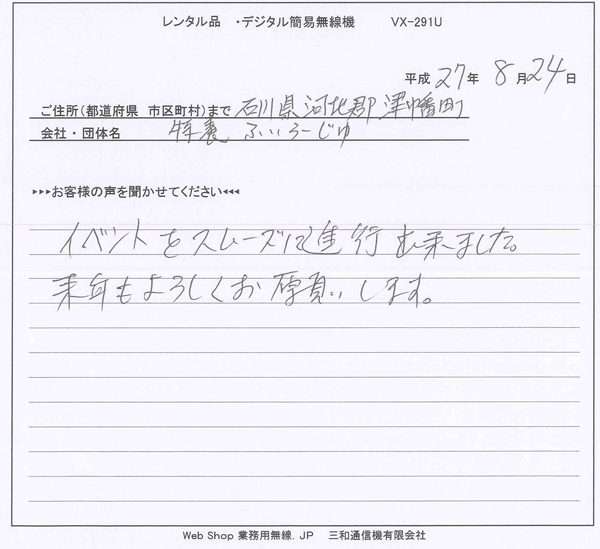 レンタル品　・デジタル簡易無線機　　VX-291U
平成 27年 8月24日
ご住所（都道府県　市区町村）まで 石川県河北郡津幡町
会社・団体名　特養 ふぃらーじゅ
▸▸▸お客様の声を聞かせてください◂◂◂
イベントをスムーズに進行出来ました。
来年もよろしくお願いします。
Web Shop 業務用無線. JP　三和通信機有限会社